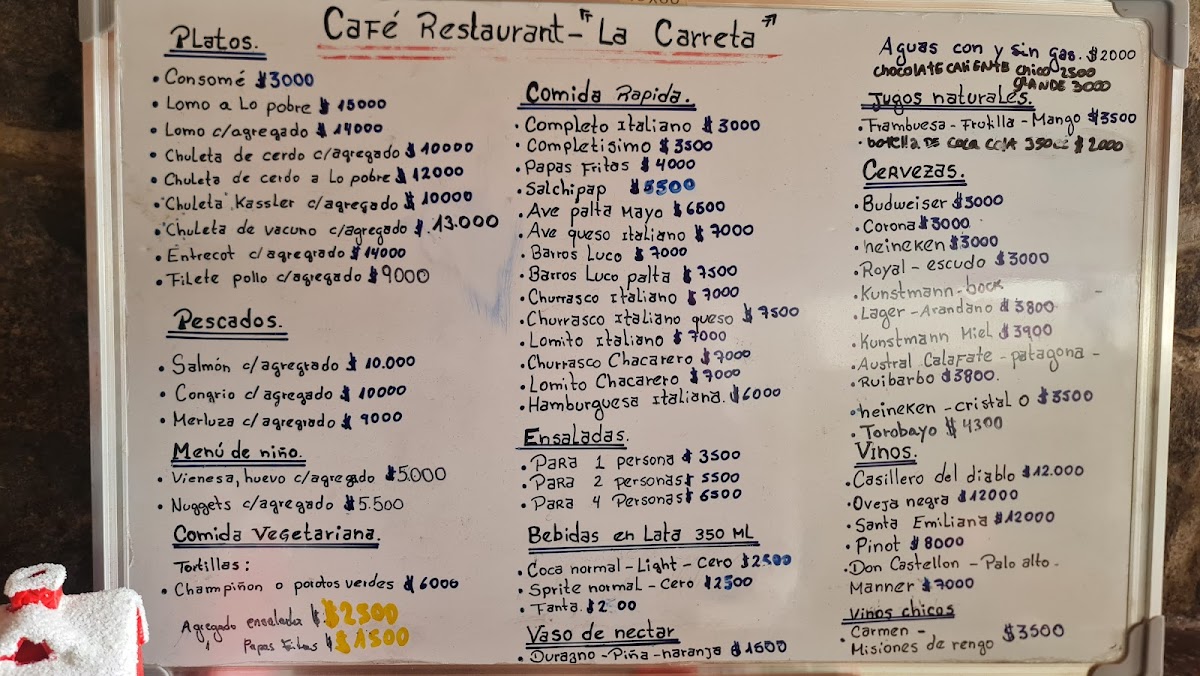 Café Restaurant - "La Carreta"
Platos.
• Consomé $3000
• Lomo a Lo pobre $ 15000
• Lomo c/agregado $ 14000
• Chuleta de cerdo c/agregado $ 10000
• Chuleta de cerdo a Lo pobre $ 12000
• Chuleta Kassler c/agregado $ 10000
• Chuleta de vacuno c/agregado $.13.000
• Entrecot c/agregrado $ 14000
• Filete pollo c/agregado $ 9000
Pescados.
• Salmón c/agregrado $ 10.000
• Congrio c/agregado $ 10000
• Merluza c/agregrado $ 9000
Menú de niño.
• Vienesa, huevo c/agregado $5.000
• Nuggets c/agregado $5.500
Comida Vegetariana.
Tortillas:
• Champiñon o porotos verdes $ 6000
Agregado ensalada $ $2500
Papas Fritas $ $1500
Comida Rapida.
• Completo Italiano $ 3000
• Completisimo $ 3500
• Papas Fritas $ 4000
• Salchipap $5500
• Ave palta Mayo $ 6500
• Ave queso Italiano $ 7000
• Barros Luco $ 7000
• Barros Luco palta $ 7500
• Churrasco Italiano $ 7000
• Churrasco Italiano queso $ 7500
• Lomito Italiano $ 7000
• Churrasco Chacarero $ 7000
• Lomito Chacarero $ 7000
• Hamburguesa Italiana. $6000
Ensaladas.
• Para 1 persona $ 3500
• Para 2 personas $ 5500
• Para 4 Personas $ 6500
Bebidas en Lata 350 ML
• Coca normal - Light - Cero $2500
• Sprite normal - Cero $2500
• Fanta. $2 00
Vaso de nectar
• Durazno - Piña - naranja $ 1500
Aguas con y sin gas. $ 2000
CHOCOLATE CALIENTE chico 2500
GRANDE 3000
Jugos naturales.
• Frambuesa - Frutilla - Mango $3500
• botella DE COCA COLA 350cc $ 2000
Cervezas.
• Budweiser $3000
• Corona $3000
• heineken $3000
• Royal - escudo $3000
• Kunstmann - bock
• Lager - Arandano $ 3800
• Kunstmann Miel $ 3900
• Austral Calafate - patagona -
• Ruibarbo $3800.
• heineken - cristal 0 $ 3500
• Torobayo $ 4300
Vinos.
• Casillero del diablo $12.000
• Oveja negra $12000
• Santa Emiliana $12000
• Pinot $ 8000
• Don Castellon - Palo alto.
Manner $7000
Vinos chicos
• Carmen - $3500
Misiones de rengo